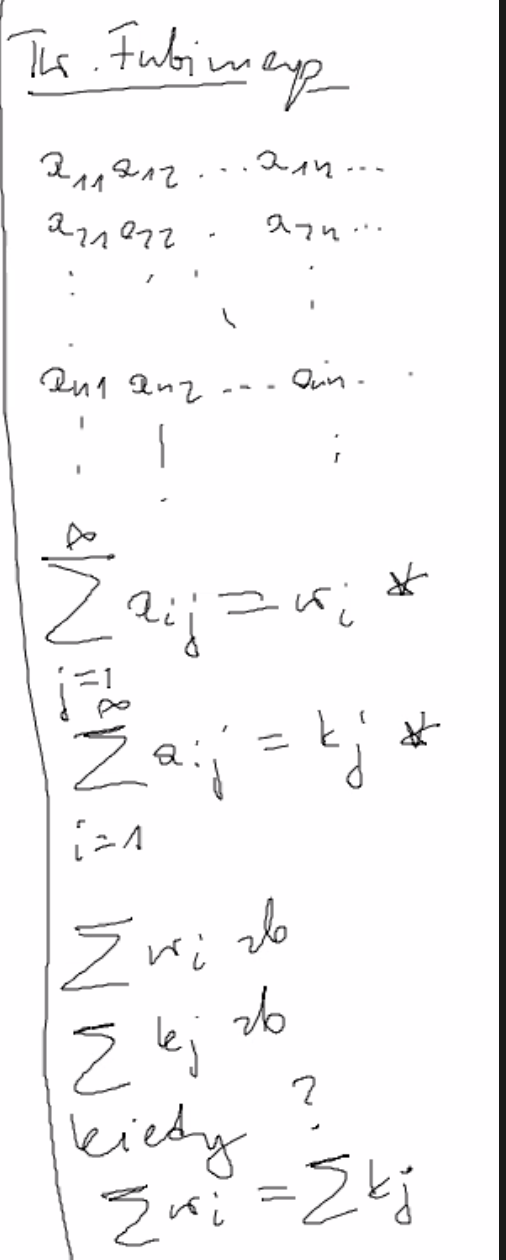 Tw. Fubiniego
a₁₁ a₁₂ ... a₁ₙ ...
a₂₁ a₂₂ . a₂ₙ ...
aₙ₁ aₙ₂ ... aₙₙ . .
∞
∑ aᵢⱼ = wᵢ *
j=1
∞
∑ aᵢⱼ = kⱼ *
i=1
∑ wᵢ zb
∑ kⱼ zb
kiedy ?
∑ wᵢ = ∑ kⱼ